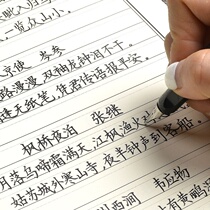 眦入归
一览众山小。
京使 岑参
路漫漫,双袖龙钟泪不干。
逢无纸笔,凭君传语报平安。
枫桥夜泊 张继
月落乌啼霜满天,江枫渔火
姑苏城外寒山寺,夜半钟声到客船。
西涧 韦应物
有黄鹂